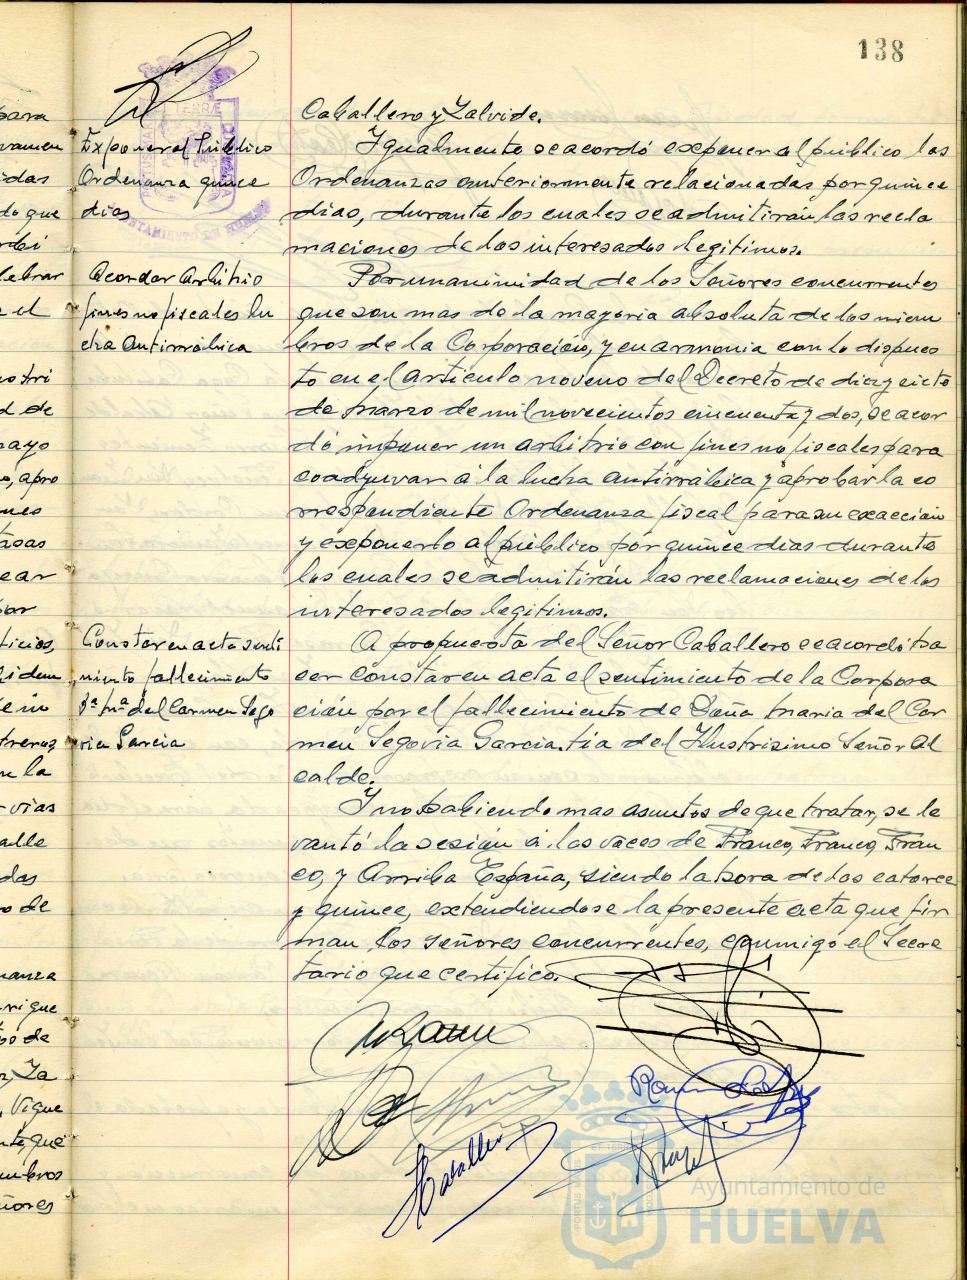 138
Caballero y Zalvide.
Exponer al público
Ordenanza quince
días
Igualmente se acordó exponer al público las
Ordenanzas anteriormente relacionadas por quince
días, durante los cuales se admitirán las recla
maciones de los interesados legítimos.
Acordar Arbitrio
fines no fiscales lu
cha Antirrábica
Por unanimidad de los Señores concurrentes
que son mas de la mayoria absoluta de los miem
bros de la Corporación, y en armonia con lo dispues
to en el articulo noveno del Decreto de diez y siete
de marzo de mil novecientos cincuenta y dos, se acor
dó imponer un arbitrio con fines no fiscales para
coadyuvar á la lucha antirrábica y aprobar la co
rrespondiente Ordenanza fiscal para su exacción
y exponerlo al público por quince días durante
los cuales se admitirán las reclamaciones de los
interesados legítimos.
Constar en acta senti
miento fallecimiento
Dª Mª del Carmen Sego
via Garcia
A propuesta del Señor Caballero se acordó ha
cer constar en acta el sentimiento de la Corpora
ción por el fallecimiento de Doña Maria del Car
men Segovia Garcia, tia del Ilustrisimo Señor Al
calde.
Y no habiendo mas asuntos de que tratar, se le
vantó la sesión á los voces de Franco, Franco, Fran
co, y Arriba España, siendo la hora de las catorce
y quince, extendiendose la presente acta que fir
man los señores concurrentes, conmigo el Secre
tario que certifico.
Caballero
Ayuntamiento de
HUELVA